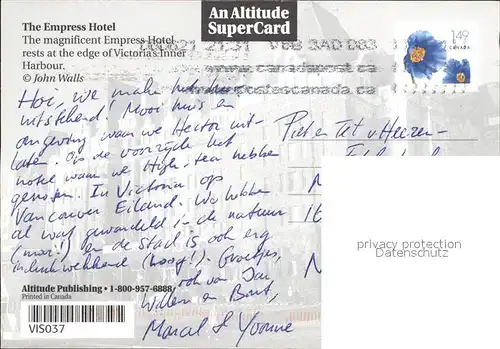 An Altitude
SuperCard
The Empress Hotel
The magnificent Empress Hotel
rests at the edge of Victoria's Inner
Harbour.
© John Walls
1.49
CANADA
V8B 3A0 D83
www.canadapost.ca
postescanada.ca
Hoi, we maken het hier
uitstekend! Mooi huis en
omgeving waar we Hector uit-
laten. Op de voorzijde het
hotel waar we High-tea hebben
genoten. In Victoria op
Vancouver Eiland. We hebben
al wat gewandeld in de natuur
(mooi!) En de stad is ook erg
indrukwekkend (hoog!). Groetjes,
ook van Jan
Willem en Bart,
Marcel & Yvonne
Piet en Tet v Heezen-
privacy protection
DELCAMPE
Altitude Publishing • 1-800-957-6888
Printed in Canada
VIS037